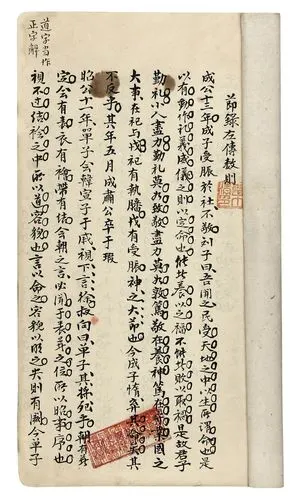 節錄左傳數則
成公十三年成子受脤於社不敬刘子曰吾聞之民受天地之中以生所謂命也是
以有動作礼義威儀之則以定命也能者養以之福不能者敗以取禍是故君子
勤礼小人盡力勤礼莫如致敬盡力莫如敦篤敬在養神篤在守業國之
大事在祀与戎祀有執膰戎有受脤神之大節也今成子惰弃其命矣其
不反乎其年五月成肅公卒于瑕
昭公十一年單子会韓宣子于戚視下言徐叔向曰單子其将死乎朝有著
定会有表衣有襘帶有结会朝之言必聞于表著之位所以昭事序也
視不过结襘之中所以道容貌也言以命之容貌以明之失則有阙今單子
道字当作
正字解